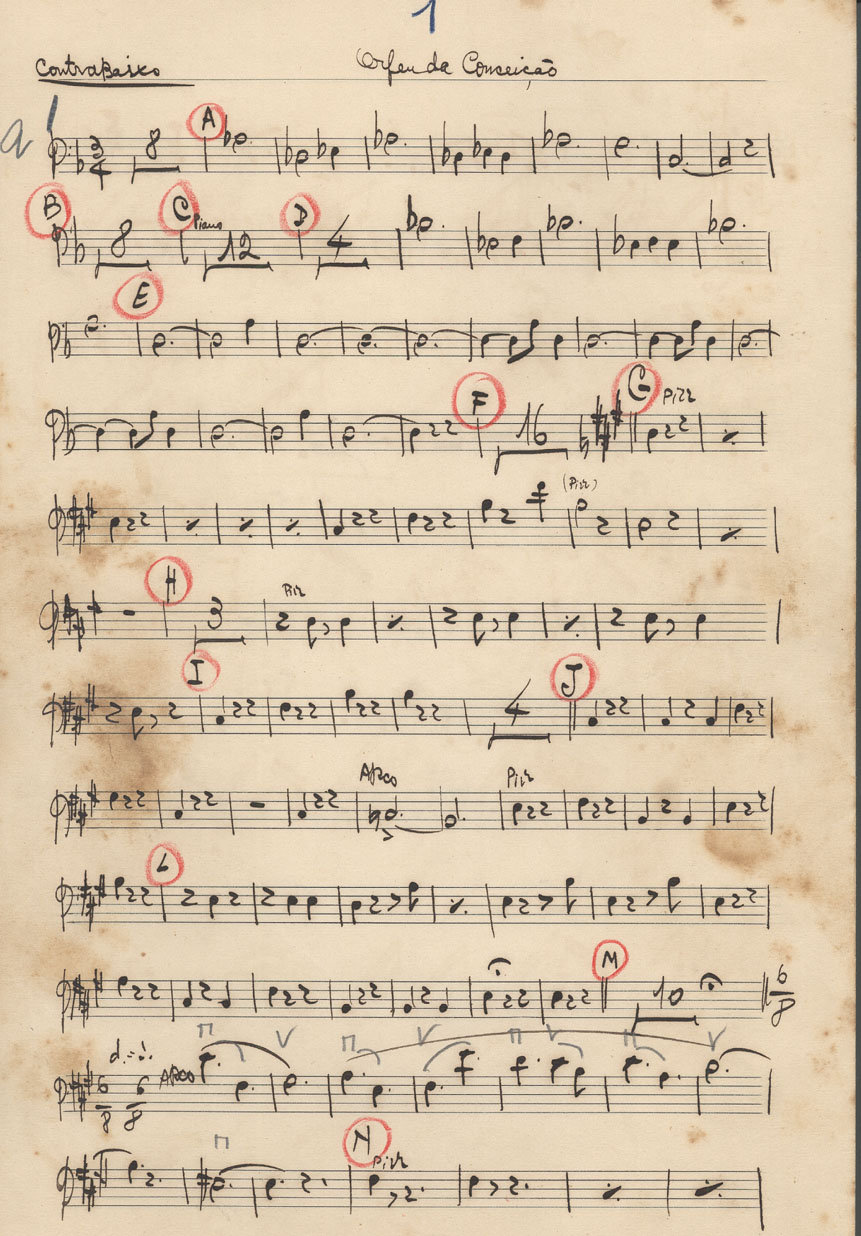 1
Contrabaixo Orfeu da Conceição
a 1
A
3/4 8
B C Piano D
8 12 4
E
F G Pizz
16
(Pizz)
H
3 Pizz
I J
4
Arco Pizz
L
M
10 6/8
6/8 6/8 ARCO
N
Pizz